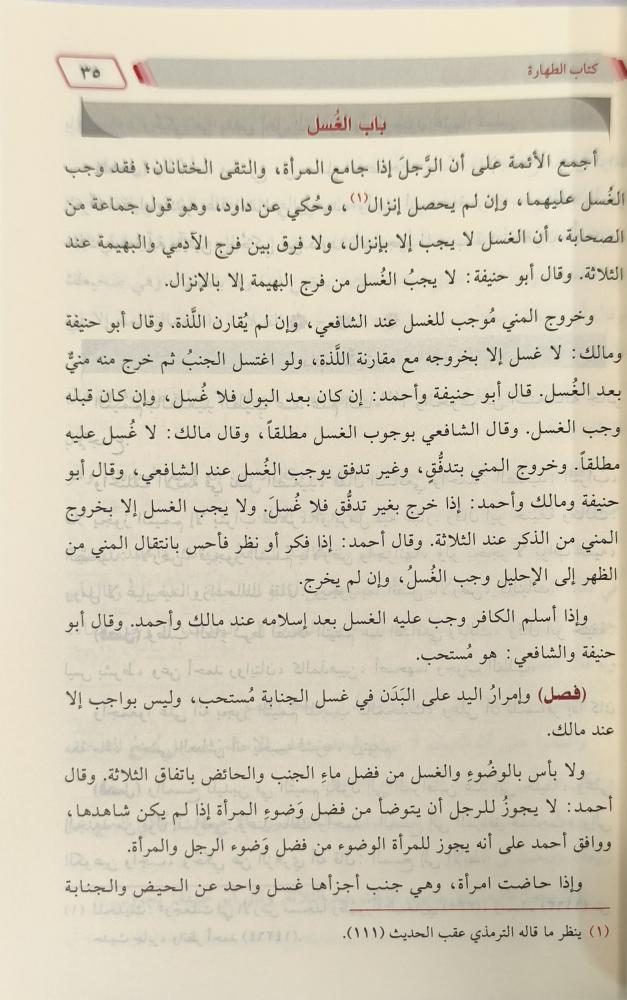 كتاب الطهارة
٣٥
باب الغُسل
أجمع الأئمة على أن الرَّجلَ إذا جامع المرأة، والتقى الختانان؛ فقد وجب
الغُسل عليهما، وإن لم يحصل إنزال(١)، وحُكي عن داود، وهو قول جماعة من
الصحابة، أن الغسل لا يجب إلا بإنزال، ولا فرق بين فرج الآدمي والبهيمة عند
الثلاثة. وقال أبو حنيفة: لا يجبُ الغُسل من فرج البهيمة إلا بالإنزال.
وخروج المني مُوجب للغسل عند الشافعي، وإن لم يُقارن اللَّذة. وقال أبو حنيفة
ومالك: لا غسل إلا بخروجه مع مقارنة اللَّذة، ولو اغتسل الجنبُ ثم خرج منه منيٌّ
بعد الغُسل. قال أبو حنيفة وأحمد: إن كان بعد البول فلا غُسل، وإن كان قبله
وجب الغسل. وقال الشافعي بوجوب الغسل مطلقاً، وقال مالك: لا غُسل عليه
مطلقاً. وخروج المني بتدفُّقٍ، وغير تدفق يوجب الغُسل عند الشافعي، وقال أبو
حنيفة ومالك وأحمد: إذا خرج بغير تدفُّق فلا غُسلَ. ولا يجب الغسل إلا بخروج
المني من الذكر عند الثلاثة. وقال أحمد: إذا فكر أو نظر فأحس بانتقال المني من
الظهر إلى الإحليل وجب الغُسلُ، وإن لم يخرج.
وإذا أسلم الكافر وجب عليه الغسل بعد إسلامه عند مالك وأحمد. وقال أبو
حنيفة والشافعي: هو مُستحب.
(فصل) وإمرارُ اليد على البَدَن في غسل الجنابة مُستحب، وليس بواجب إلا
عند مالك.
ولا بأس بالوضُوءِ والغسل من فضل ماءِ الجنب والحائض باتفاق الثلاثة. وقال
أحمد: لا يجوزُ للرجل أن يتوضأ من فضل وَضوءِ المرأة إذا لم يكن شاهدها،
ووافق أحمد على أنه يجوز للمرأة الوضوء من فضل وَضوء الرجل والمرأة.
وإذا حاضت امرأة، وهي جنب أجزأها غسل واحد عن الحيض والجنابة
(١) ينظر ما قاله الترمذي عقب الحديث (١١١).